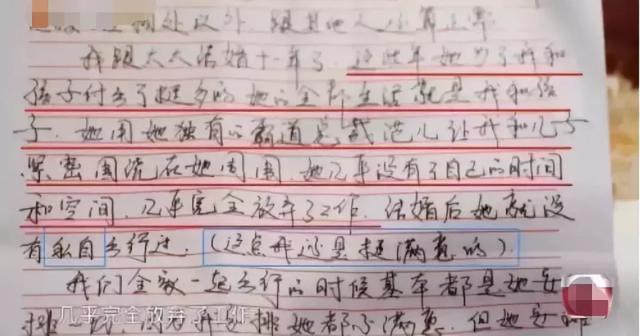 跟其他人还算正常
我跟太太结婚十一年了，这些年她为了我和
孩子付出了挺多的她的全部生活就是我和孩
子．她用她独有的霸道总裁范儿让我和儿子
紧密围绕在她周围．她几乎没有了自己的时间
和空间，几乎完全放弃了工作．结婚后她就没
有私自出行过．（这点我还是挺满意的）．
我们全家一起出行的时候基本都是她安
排 她都不满意，但她安排
几乎完全放弃了工作